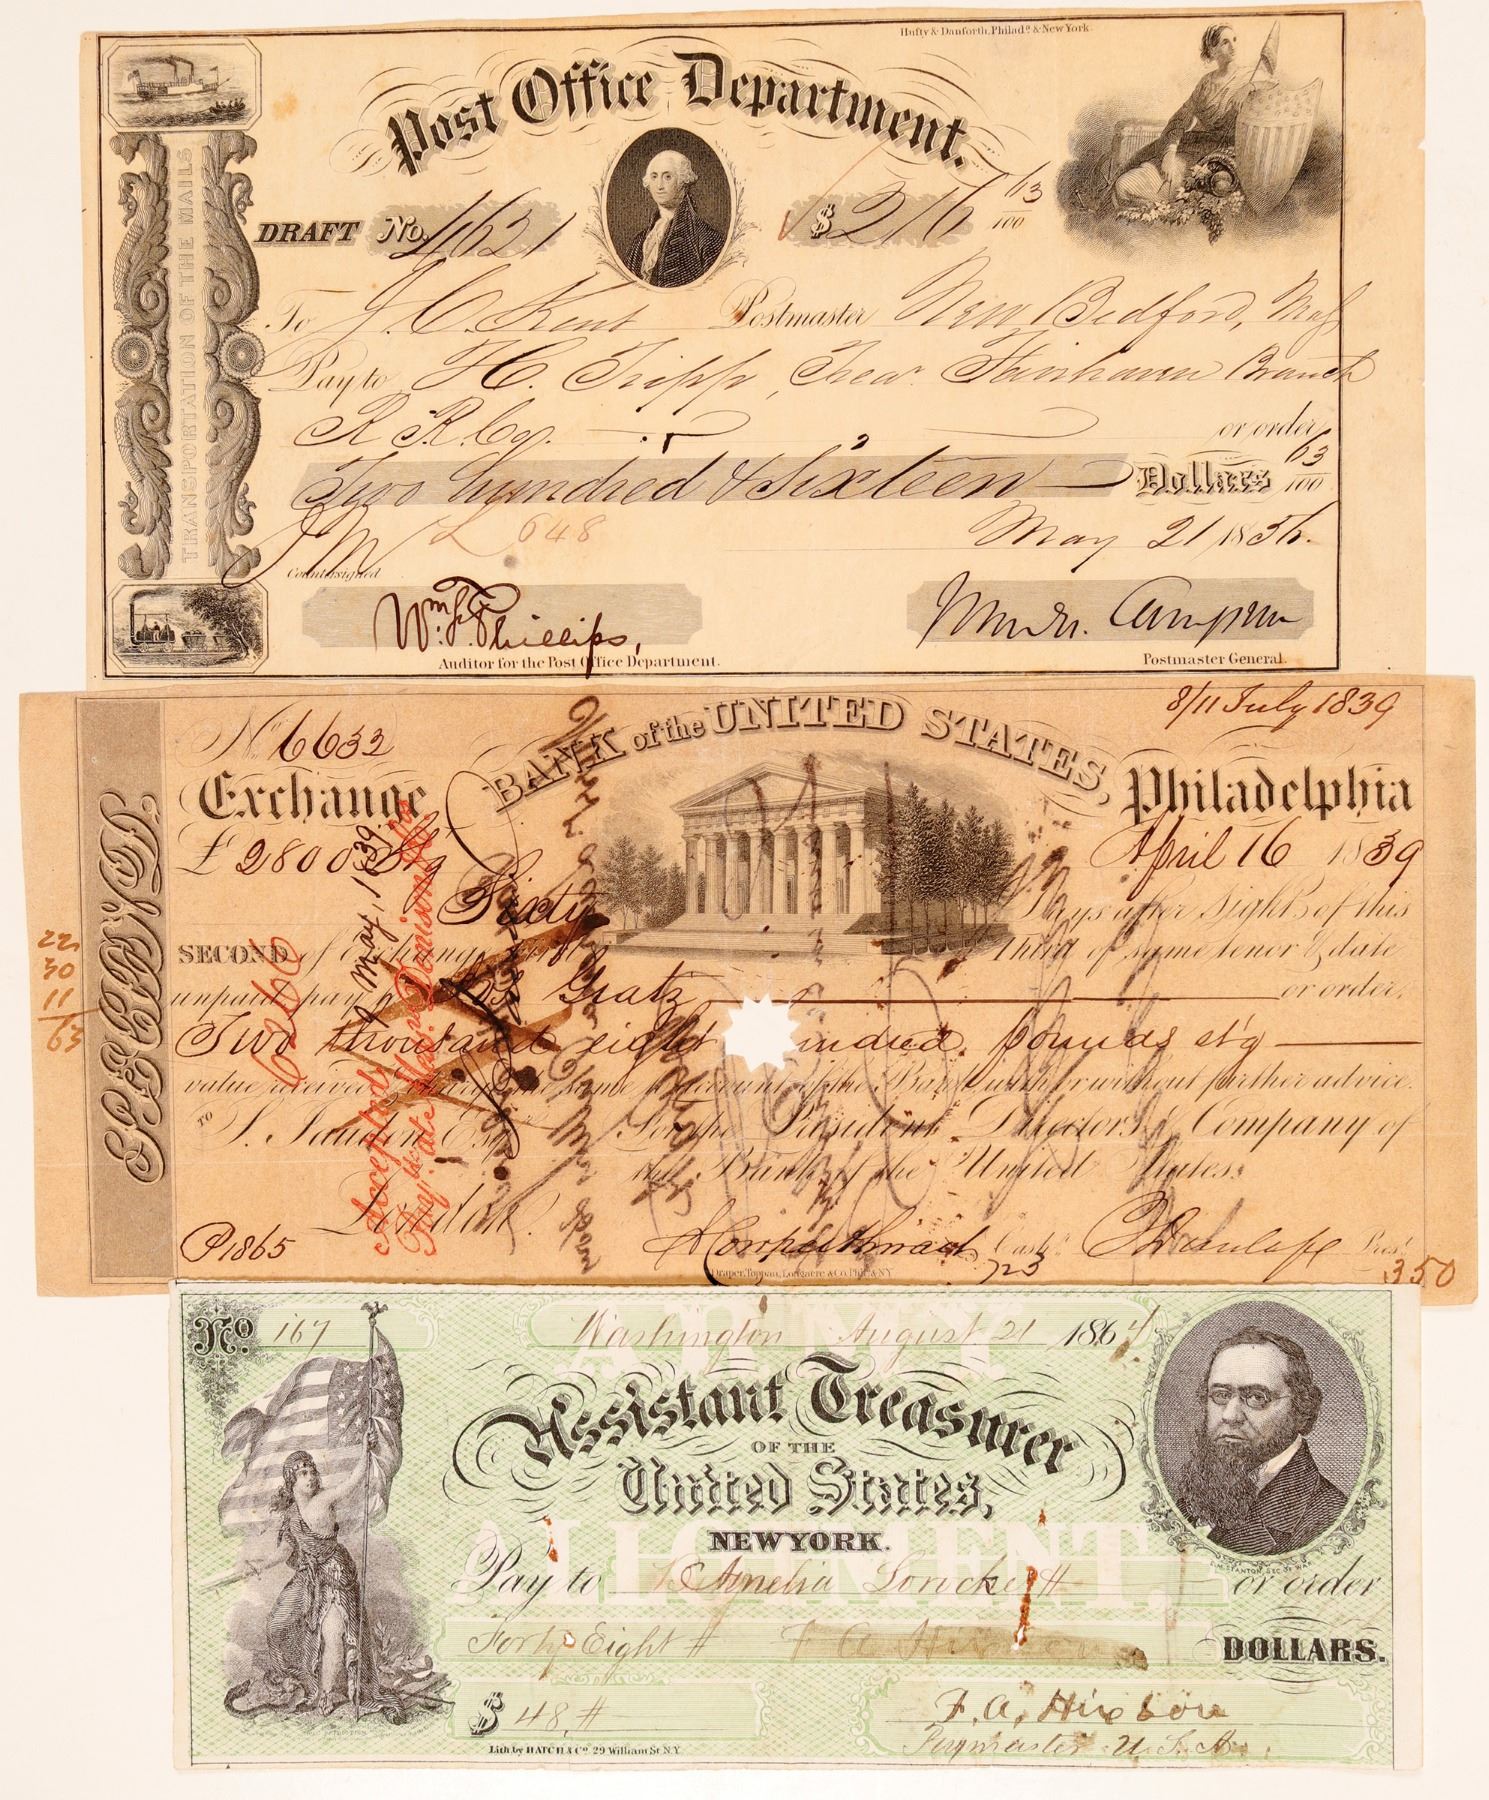 Hufty & Danforth, Philadª & New York.
Post Office Department.
TRANSPORTATION OF THE MAILS
DRAFT No. 4621 $ 216 63/100
To J. C. Kent Postmaster New Bedford, Mass
Pay to H. Tripp, Trea. Fairhaven Branch
R. R. Co. or order
Two hundred & Sixteen Dollars 63/100
J M 648 May 21 1856.
Countersigned
Wm. F. Phillips,
Auditor for the Post Office Department.
Postmaster General.
No 6632 BANK of the UNITED STATES, 8/11 July 1839
Exchange Philadelphia
£ 2800 Stg April 16 1839
Sixty Days after Sight of this
SECOND of Exchange First & Third of same tenor & date
unpaid pay to Gratz or order,
Two thousand eight hundred pounds stg
value received & charge the same to account of the Bank with or without further advice.
TO S. Jaudon Esq. For the President, Directors & Company of
the Bank of the United States.
London.
P1865 Cash. T Dunlap Prest.
Draper, Toppan, Longacre & Co. Phil. & N.Y.
723
350
22
30
11
63
6266
9 May, 1839
Accepted
Denison & Co
No. 167 Washington August 21 1864.
ARMY
Assistant Treasurer
OF THE
United States,
NEW YORK.
ALLOTMENT.
E.M. STANTON, SEC. OF WAR
Pay to Amelia or order
Forty Eight # F A Hixson DOLLARS.
$ 48. # F. A. Hixson
Lith by HATCH & Co. 29 William St. N.Y. Paymaster U.S.A.